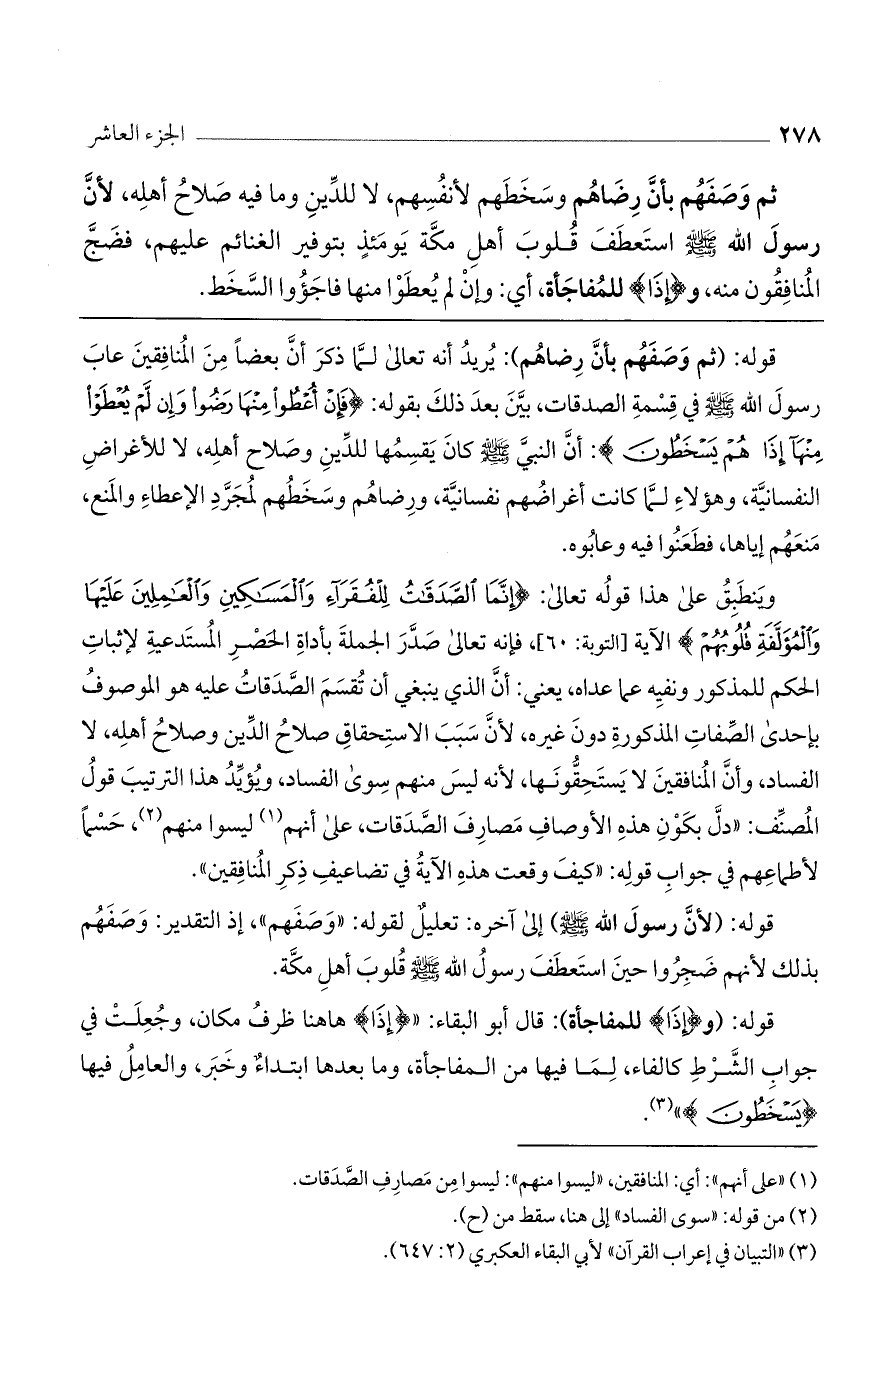 ٢٧٨ الجزء العاشر
ثم وَصَفَهُم بأنَّ رِضَاهُم وسَخَطَهم لأنفُسِهم، لا للدِّينِ وما فيه صَلاحُ أهلِه، لأنَّ
رسولَ الله ﷺ استَعطَفَ قُلوبَ أهلِ مكَّة يَومَئذٍ بتوفير الغنائم عليهم، فضَجَّ
المُنافِقُون منه، و﴿إِذَا﴾ للمُفاجَأة، أي: وإنْ لم يُعطَوْا منها فاجَؤُوا السَّخَط.
قوله: (ثم وَصَفَهُم بأنَّ رِضاهُم): يُريدُ أنه تعالىٰ لـمَّا ذكرَ أنَّ بعضاً مِنَ المُنافِقينَ عابَ
رسولَ الله ﷺ في قِسْمةِ الصدقات، بيَّنَ بعدَ ذلكَ بقوله: ﴿فَإِنْ أُعْطُوا۟ مِنْهَا رَضُوا۟ وَإِن لَّمْ يُعْطَوْا۟
مِنْهَآ إِذَا هُمْ يَسْخَطُونَ﴾: أنَّ النبيَّ ﷺ كانَ يَقسِمُها للدِّينِ وصَلاحِ أهلِه، لا للأغراضِ
النفسانيَّة، وهؤلاءِ لـمَّا كانت أغراضُهم نفسانيَّة، ورِضاهُم وسَخَطُهم لمُجَرَّدِ الإعطاءِ والمَنع،
مَنعَهُم إياها، فطَعَنُوا فيه وعابُوه.
ويَنطَبِقُ علىٰ هذا قولُه تعالىٰ: ﴿إِنَّمَا ٱلصَّدَقَٰتُ لِلْفُقَرَآءِ وَٱلْمَسَٰكِينِ وَٱلْعَٰمِلِينَ عَلَيْهَا
وَٱلْمُؤَلَّفَةِ قُلُوبُهُمْ﴾ الآية [التوبة: ٦٠]، فإنه تعالىٰ صَدَّرَ الجملةَ بأداةِ الحَصْرِ المُستَدعيةِ لإثباتِ
الحكم للمذكور ونفيِه عما عداه، يعني: أنَّ الذي ينبغي أن تُقسَمَ الصَّدَقاتُ عليه هو الموصوفُ
بإحدىٰ الصِّفاتِ المذكورةِ دونَ غيره، لأنَّ سَبَبَ الاستِحقاقِ صلاحُ الدِّين وصلاحُ أهلِه، لا
الفساد، وأنَّ المُنافقينَ لا يَستَحِقُّونَـها، لأنه ليسَ منهم سِوىٰ الفساد، ويُؤيِّدُ هذا الترتيبَ قولُ
المُصنِّف: «دلَّ بكَوْنِ هذهِ الأوصافِ مَصارِفَ الصَّدَقات، علىٰ أنهم(١) ليسوا منهم(٢)، حَسْماً
لأطماعِهم في جوابِ قولِه: «كيفَ وقعت هذهِ الآيةُ في تضاعيفِ ذِكرِ المُنافقين».
قوله: (لأنَّ رسولَ الله ﷺ) إلىٰ آخره: تعليلٌ لقوله: «وَصَفَهم»، إذ التقدير: وَصَفَهُم
بذلك لأنهم ضَجِرُوا حينَ استَعطَفَ رسولُ الله ﷺ قُلوبَ أهلِ مكَّة.
قوله: (و﴿إِذَا﴾ للمفاجأة): قال أبو البقاء: «﴿إِذَا﴾ هاهنا ظرفُ مكان، وجُعِلَـتْ في
جوابِ الشَّـرْطِ كالفاء، لِـمَـا فيها من الـمفاجأة، وما بعدها ابتـداءٌ وخَبَر، والعامِلُ فيها
﴿يَسْخَطُونَ﴾»(٣).
(١) «على أنهم»: أي: المنافقين، «ليسوا منهم»: ليسوا مِن مَصارِفِ الصَّدَقات.
(٢) من قوله: «سوى الفساد» إلى هنا، سقط من (ح).
(٣) «التبيان في إعراب القرآن» لأبي البقاء العكبري (٢: ٦٤٧).